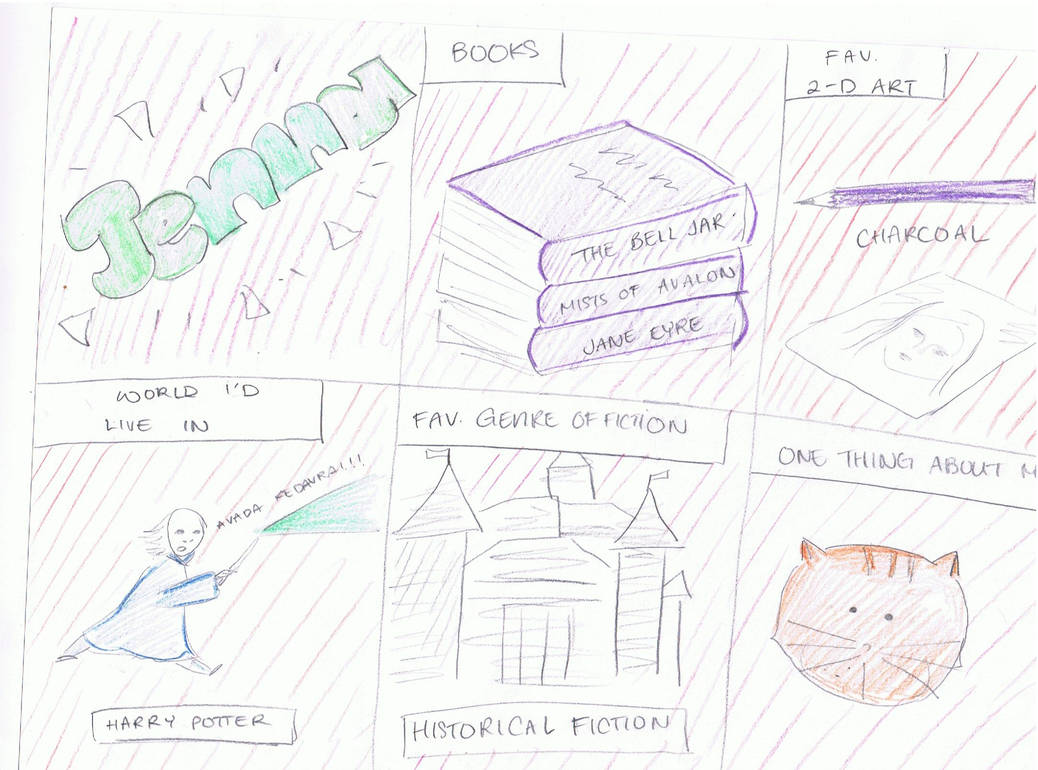 Jemma
BOOKS
THE BELL JAR.
MISTS OF AVALON
JANE EYRE
FAV.
2-D ART
CHARCOAL
WORLD I'D
LIVE IN
AVADA KEDAVRA!!!
HARRY POTTER
FAV. GENRE OF FICTION
HISTORICAL FICTION
ONE THING ABOUT M